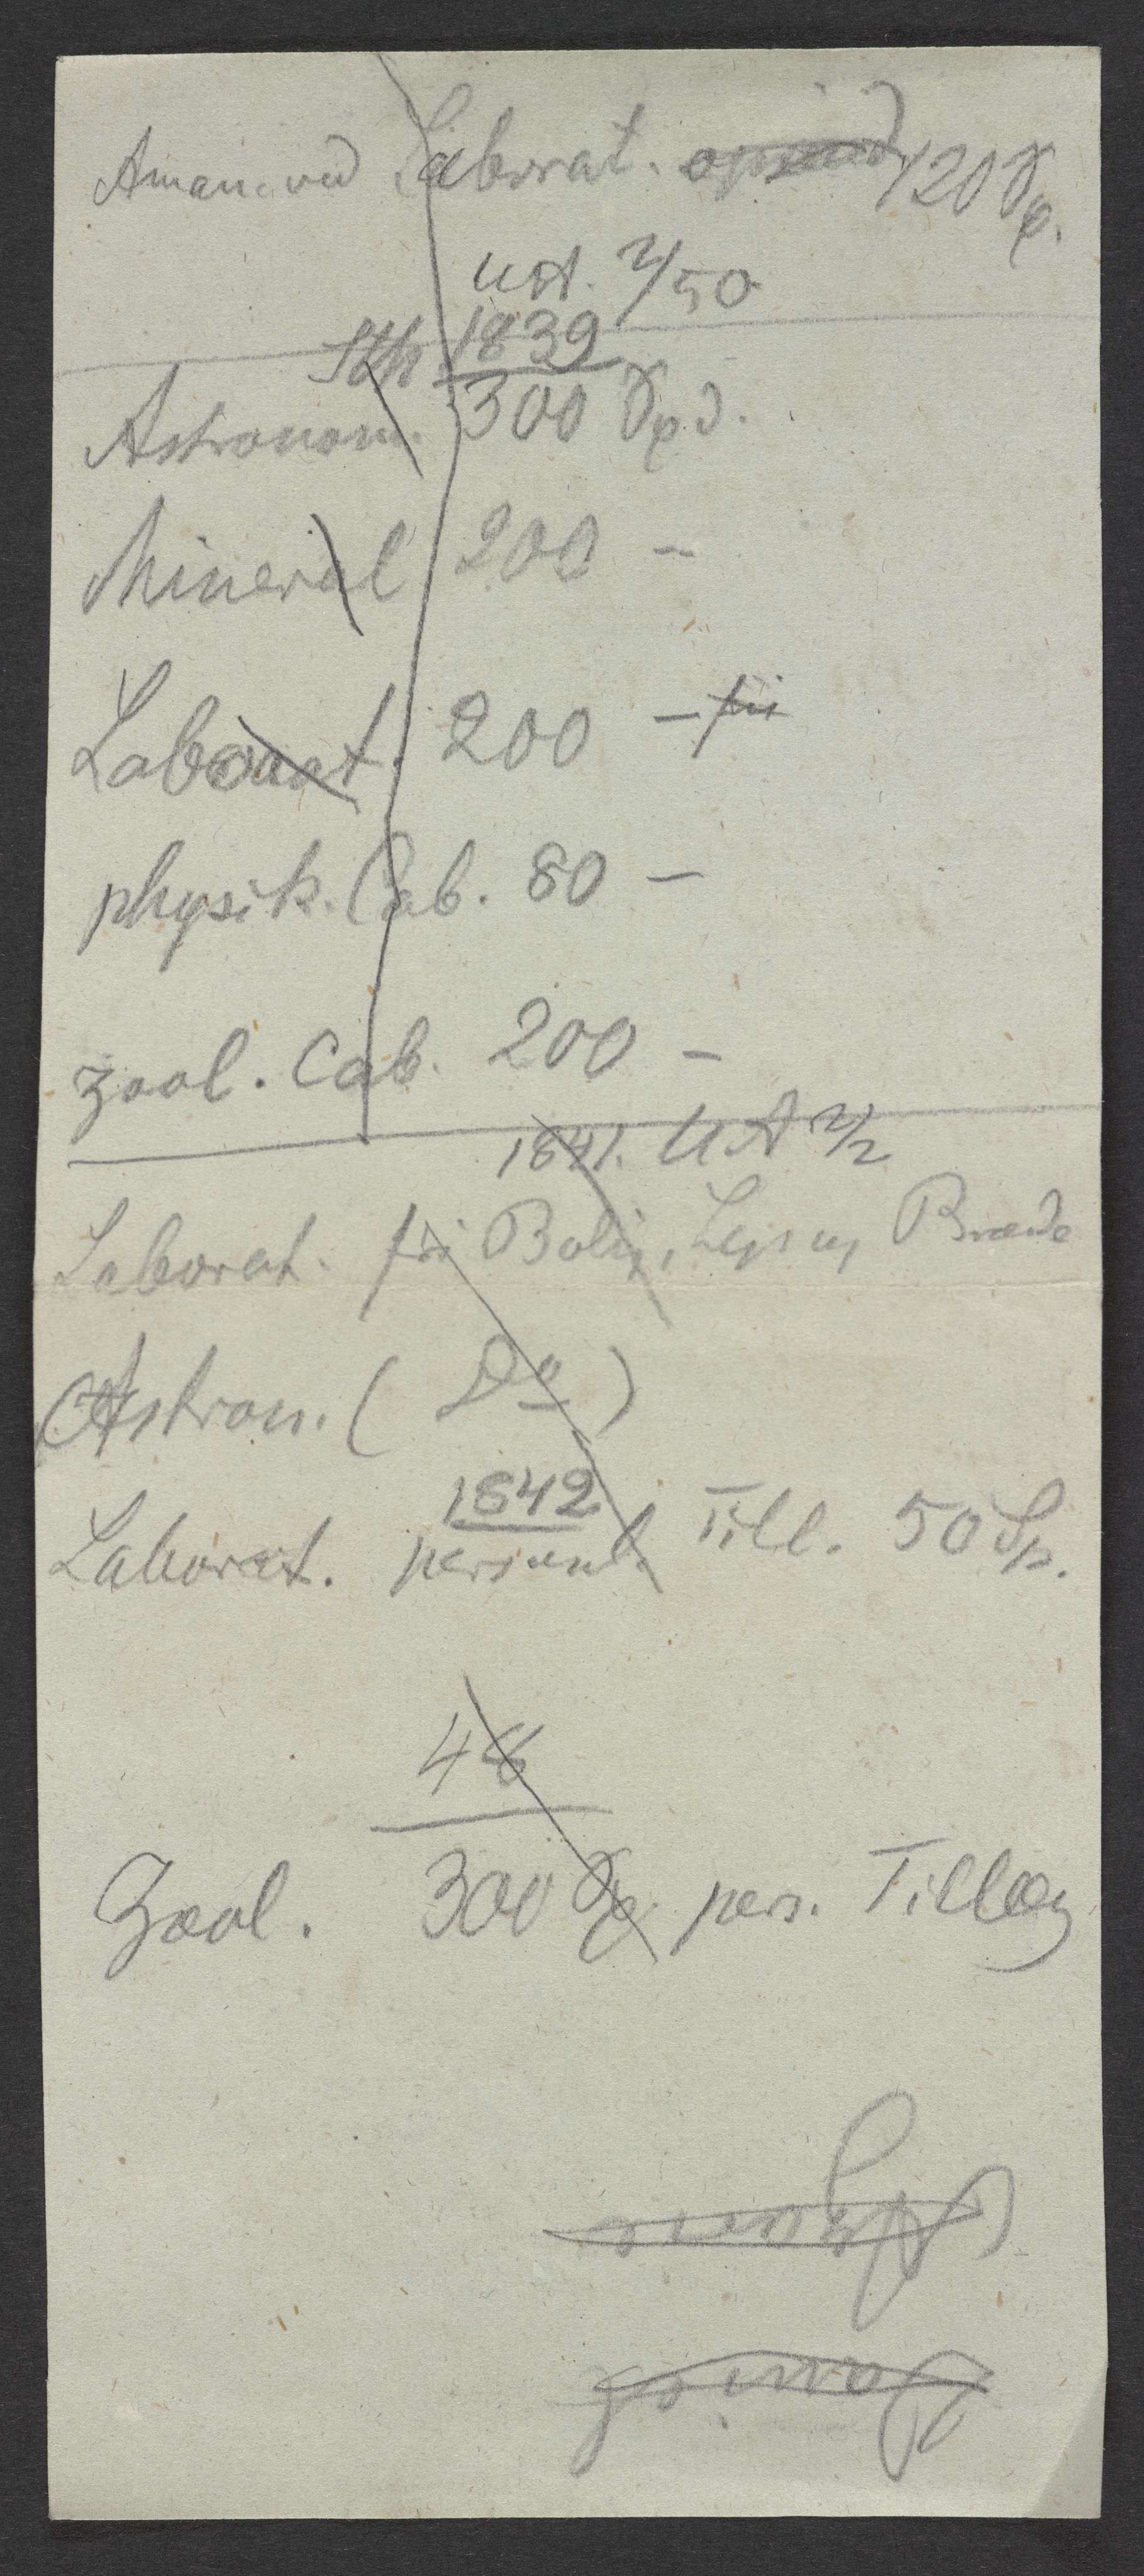 Aman. ved Laborat. 120 Sp.
Ust. 2/50
Sth. 1839
Astronom. 300 Spd.
Mineral 200 —
Laborat. 200 — fri
physik. Cab. 80 —
zool. Cab. 200 —
1841. U A 2/2
Laborat. fri Bolig, Lys og Brænde
Astron. ( Do )
1842
Laborat. personl. Till. 50 Sp.
48
Zool. 300 Sp. pers. Tillæg